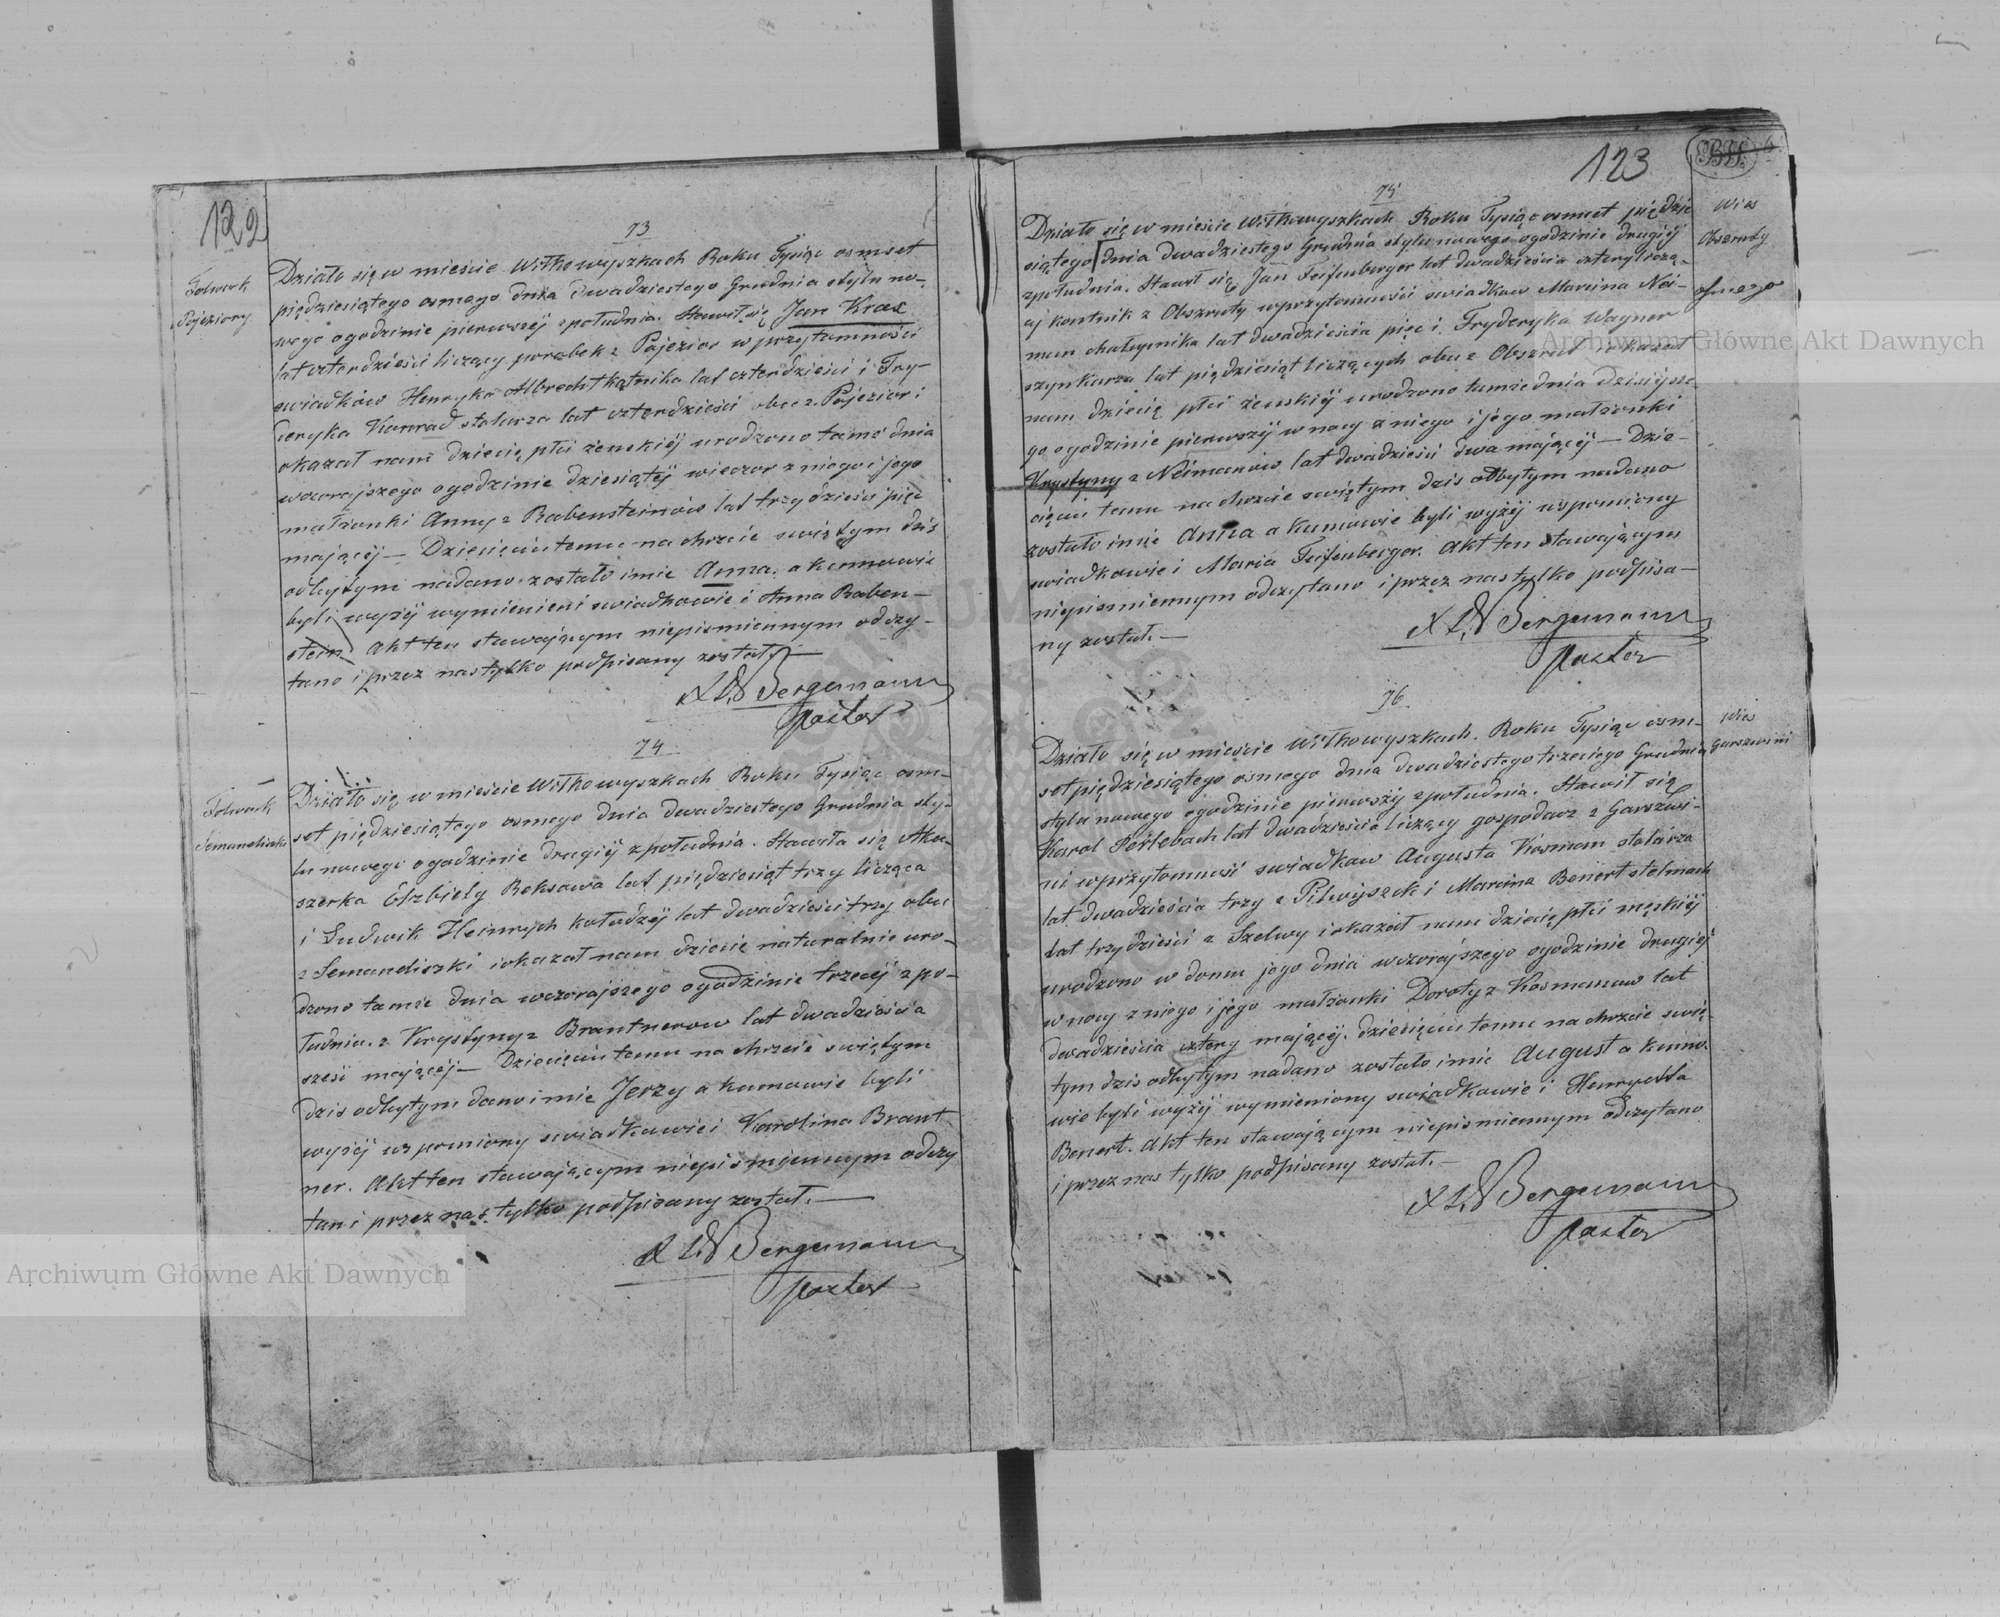 122
Folwark
Pojeziory
73
Działo się w mieście Wiłkowyszkach Roku Tysiąc osmset
pięдziesiątego osmego dnia dwadziestego Grudnia stylu no-
wego ogodzinie pierwszéj zpołudnia. Stawił się Jan Krax
lat czterdzieści liczący parobek z Pojezior w przytomności
swiadków Henryka Albrecht kątnika lat czterdzieści i Fry-
deryka Konrad stolarza lat czterdzieści obu z Pojezior i
okazał nam dziecię płci zenskiéj urodzono tamż dnia
wczorajszego ogodzinie dziesiątéj wieczor z niego i jego
małzonki Anny z Rabensteinów lat trzydzieści pięć
mającéj — Dziecięciu temu na chrzcie swiętym dziś
odbytym nadano zostało imie Anna. a kumowie
byli wyzéj wymienieni swiadkowie i Anna Raben-
stein Akt ten stawającym niepismiennym odczy-
tano i przez nas tylko podpisany został. —
Bergemann
Pastor
74
Folwark
Semaneliszki
Działo się w mieście Wiłkowyszkach Roku Tysiąc osm-
set pięдziesiątego osmego dnia dwadziestego Grudnia sty-
lu nowego ogodzinie drugiéj zpołudnia. Stawiła się Aku-
szerka Elzbiety Reksawa lat pięдziesiąt trzy licząca
i Ludwik Heinrych kołodzéj lat dwadzieści trzy obu
z Semaneliszki iokazał nam dziecie naturalnie uro-
dzono tamze dnia wczorajszego ogodzinie trzeciéj zpo-
łudnia. z Krystyny z Brantnerow lat dwadzieścia
sześć mającéj — Dziecięciu temu na chrzcie swiętym
dzis odbytym dano imie Jerzy a kumowie byli
wyzéj wspomniony swiadkowie i Karolina Brant-
ner. Akt ten stawającym niepismiennym odczy
tan i przez nas tylko podpisany został. —
Bergemann
Pastor
123
75
Wies
Obszruty
Działo się w mieście Wiłkowyszkach Roku Tysiąc osmset pięдzie
siątego dnia dwadziestego Grudnia stylu nowego ogodzinie drugiéj
zpołudnia. Stawił się Jan Teifenberger lat dwadzieścia cztery liczą-
cy kontnik z Obszruty wprzytomności swiadkow Marcina Nei-
man chałupnika lat dwadzieścia pięc i Fryderyka Wagner
szynkarza lat pięдziesiąt liczących obu z Obszrut iokazał
nam dziecię płci żenskiéj urodzono tamże dnia dzisiejsze-
go ogodzinie pierwszéj w nocy z niego i jego małzonki
Krystyny z Neimanów lat dwadzieści dwa mającéj — Dzie-
cięciu temu na chrzcie swiętym dzis odbytym nadano
zostało imie Anna a kumowie byli wyzéj wspomniony
swiadkowie i Maria Teifenberger. Akt ten stawającym
niepismiennym odczytano i przez nas tylko podpisa-
ny został. —
Bergemann
Pastor
76.
wies
Garszwini
Działo się w mieście Wiłkowyszkach. Roku Tysiąc osm-
set pięдziesiątego osmego dnia dwadziestego trzeciego Grudnia
stylu nowego ogodzinie pierwszéj zpołudnia. Stawił się
Karol Perlebach lat dwadzieścia liczący gospodarz z Garszwi-
ni wprzytomność swiadkow Augusta Kosman stolarza
lat dwadzieścia trzy z Pilwiszek i Marcina Benert stelmach
lat trzydzieści z Szelwy i okazał nam dziecię płci męskiéj
urodzono w domu jego dnia wczorajszego ogodzinie drugiéj
w nocy z niego i jego małzonki Doroty z Kosmanow lat
dwadzieścia cztery mającéj. dziecięciu temu na chrzcie swię-
tym dzis odbytym nadano zostało imie August a kumo-
wie byli wyzéj wymieniony swiadkowie i Henryetta
Benert. Akt ten stawającym niepismiennym odczytano
i przez nas tylko podpisany został. —
Bergemann
Pastor
Archiwum Główne Akt Dawnych
Archiwum Główne Akt Dawnych